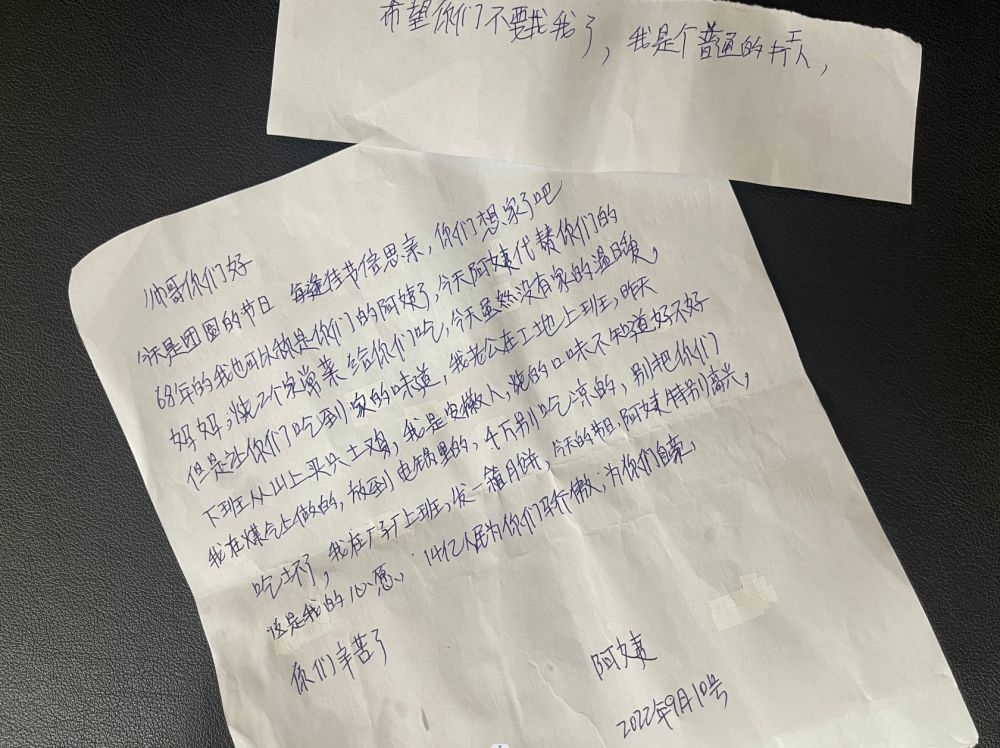 希望你们不要找我了，我是个普通的打工人，
帅哥你们好
今天是团圆的节日 每逢佳节倍思亲，你们想家了吧
68年的我也可以做是你们的阿姨了，今天阿姨代替你们的
妈妈，烧2个家常菜给你们吃，今天虽然没有家的温暖，
但是让你们吃到家的味道，我老公在工地上班，昨天
下班从山上买只土鸡，我是安徽人，烧的口味不知道好不好
我在煤气上做的，放到电锅里的，千万别吃凉的，别把你们
吃坏了，我在厂子上班，发一箱月饼，今天的节日，阿姨特别高兴，
这是我的心愿、14亿人民为你们骄傲，为你们自豪，
你们辛苦了
阿姨
2022年9月10号